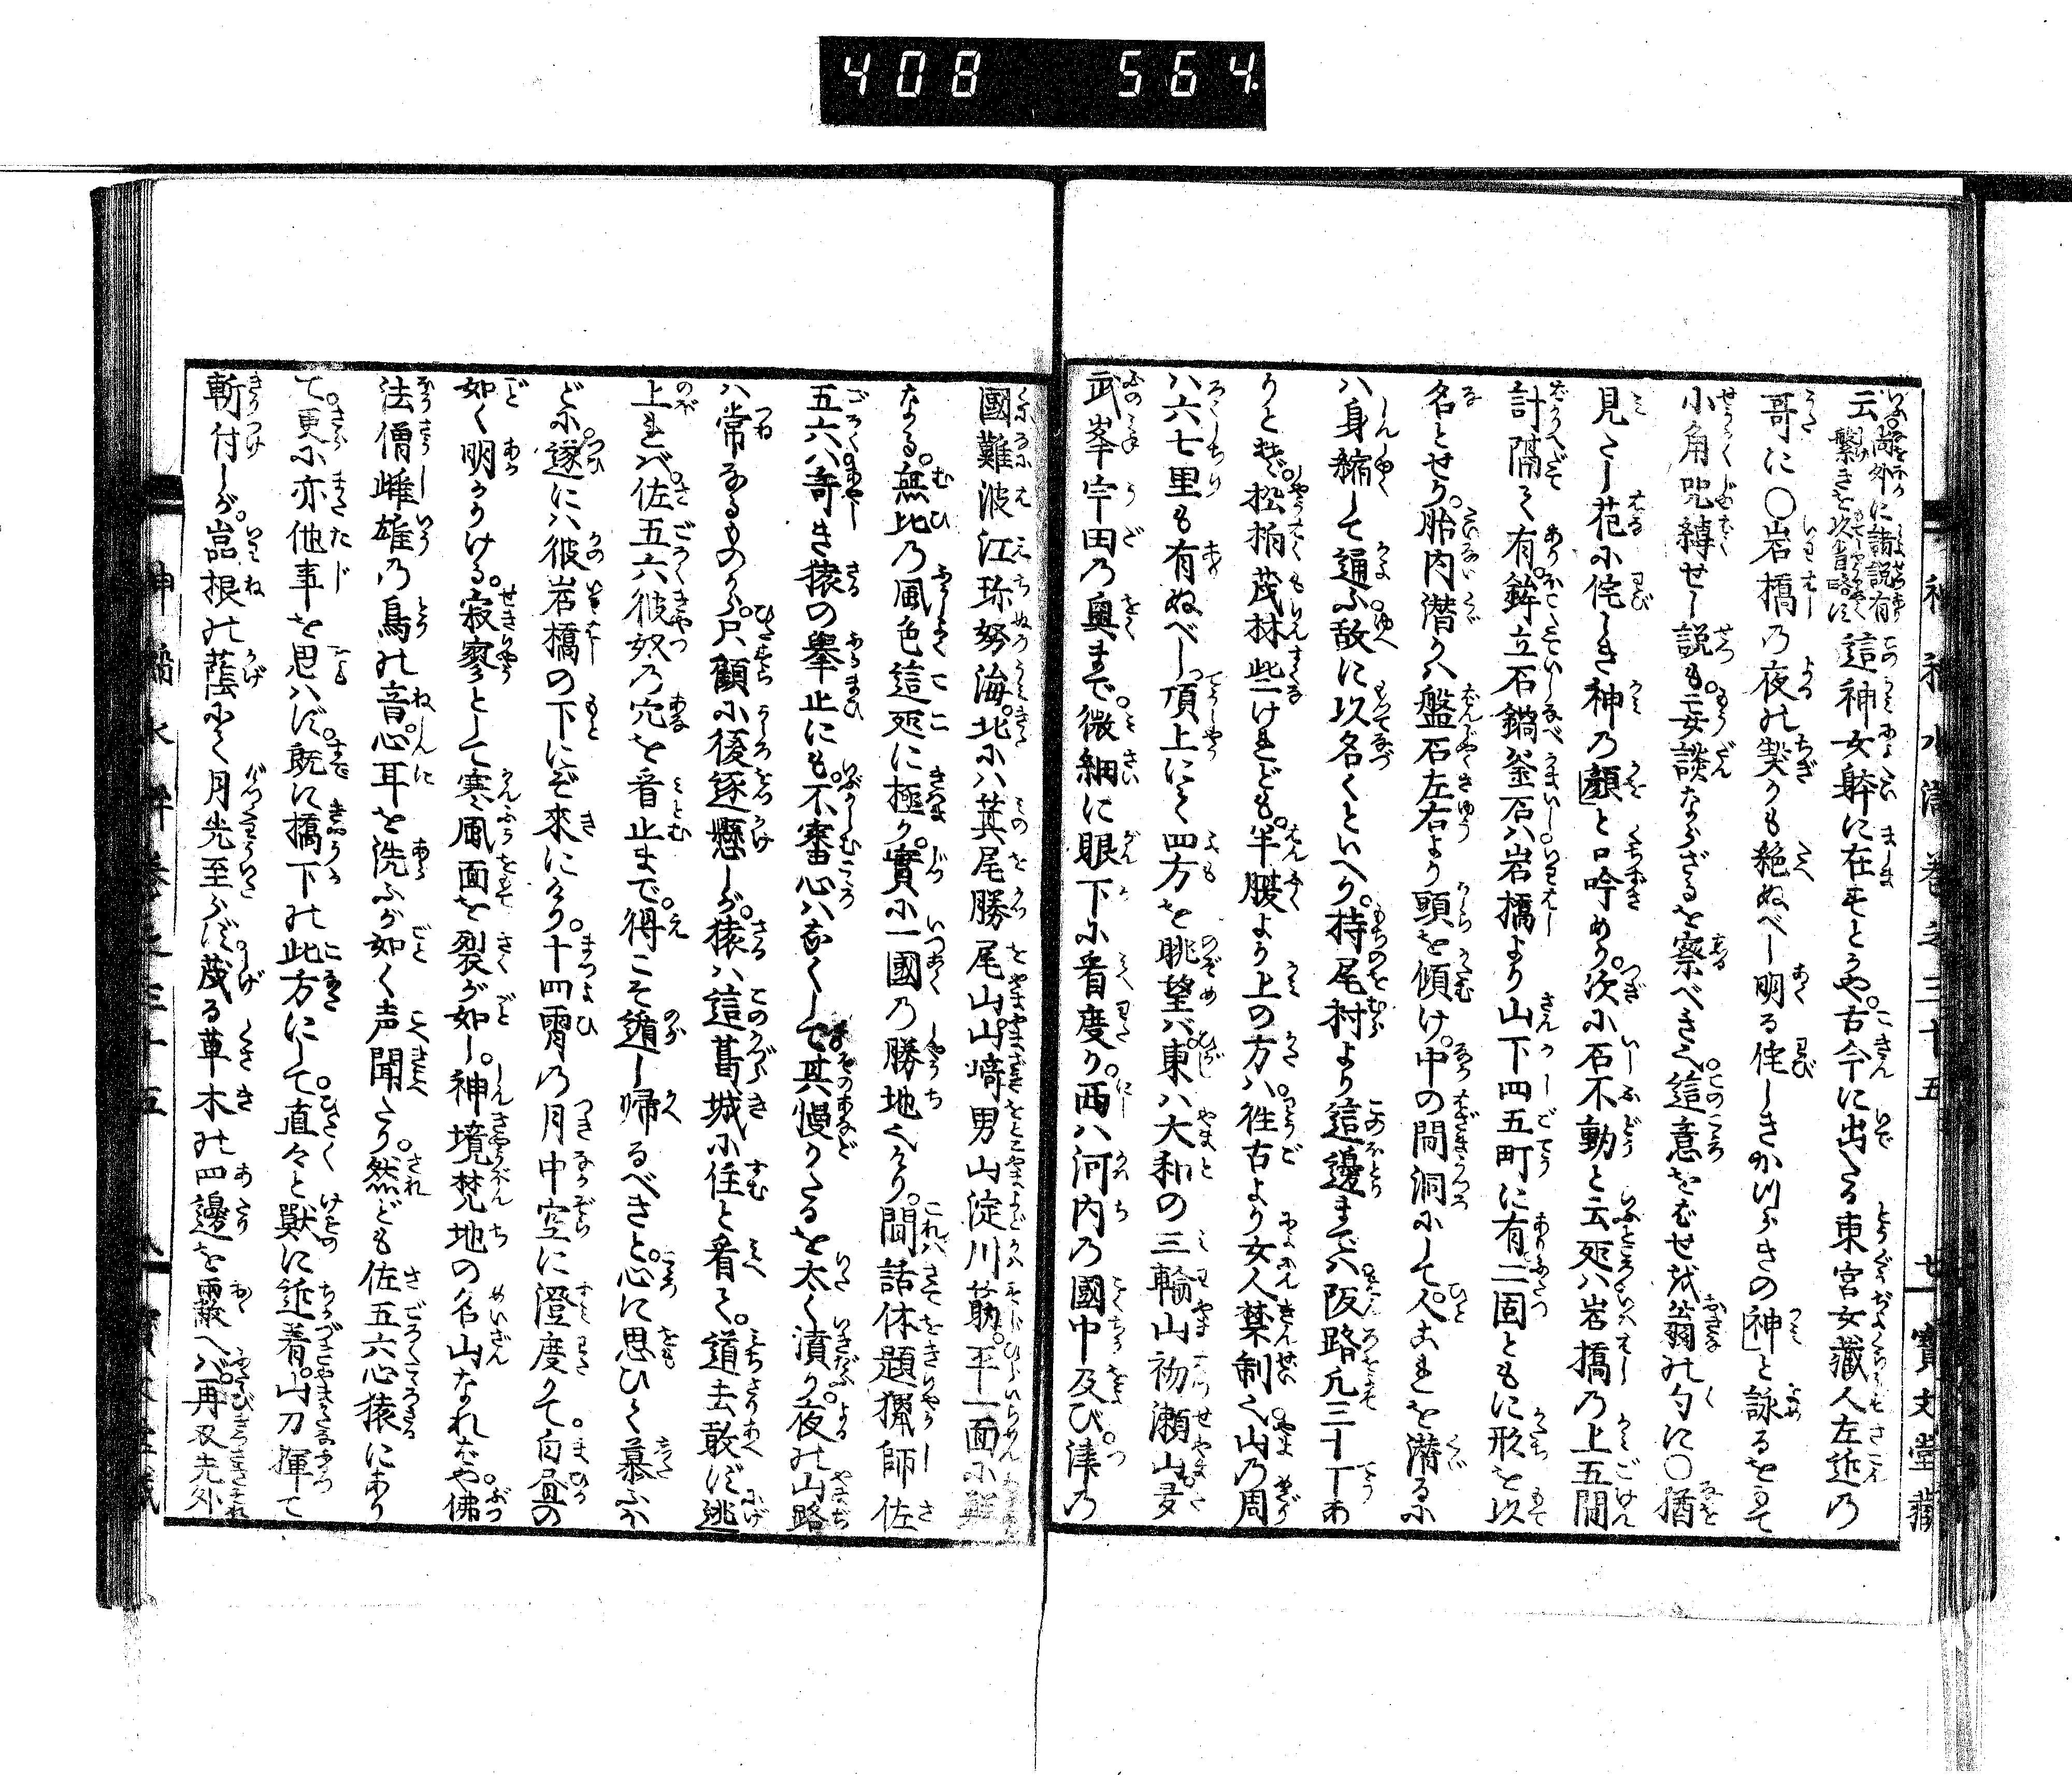 408 564
云尚外に諸説有繁きを以省略は這神女躰に在すとうや。古今に出たる東宮女藏人左近乃
哥に〇岩橋乃夜の契りも絶ぬべし明る侘しきかつらきの神と詠るをもて
小角咒縛せし説も。妄談ならざるを察べき也。這意をばせを翁の句に〇猶
見たし花に侘しき神乃顔と口吟めり。次に石不動と云処ハ岩橋乃上五間
計隔て有。鉾立石鍋釜石ハ岩橋より山下四五町に有。二固ともに形を以
名とせり。胎内潜りハ盤石左右より頭を傾け。中の間洞にして。人これを潜るに
ハ身縮して通ふ故に以名くといへり。持尾村より這邊までハ阪路凡三十丁あ
りと。松柏茂林些けれども。半腹より上の方ハ。徃古より女人禁制也。山乃周
ハ六七里も有ぬべし。頂上にて四方を眺望バ。東ハ大和の三輪山初瀬山多
武峯宇田乃奥まで。微細に眼下に看度り。西ハ河内乃國中及び。津乃
國難波江珎努海。北にハ箕尾勝尾山。山﨑男山淀川筋。平一面に鮮
なる。無比乃風色這処に極り。實に一國乃勝地也けり。閒話休題猟師佐
五六ハ奇き猿の擧止にも。不審心ハなくして其慢りたるを太く憤り。夜の山路
ハ常なるものから。只顧に後逐懸しが。猿ハ這葛城に住と看て。道去敢ず逃
上れバ。佐五六彼奴乃穴を看止まで。得こそ遁し帰るべきと。心に思ひて慕ふほ
どに。遂にハ彼岩橋の下にぞ來にけり。十四霄乃月中空に澄度りて。白昼の
如く明りける。寂寥として寒風面を裂が如し。神境梵地の名山なれバや。佛
法僧雌雄乃鳥の音。心耳を洗ふが如く声聞たり。然ども佐五六心猿にあり
て。更に亦他事を思ハず。既に橋下の此方にして。直々と獣に近着。山刀揮て
斬付しが。嵓根の蔭にて月光至らず。茂る草木の四邊を覆へバ。再及先外